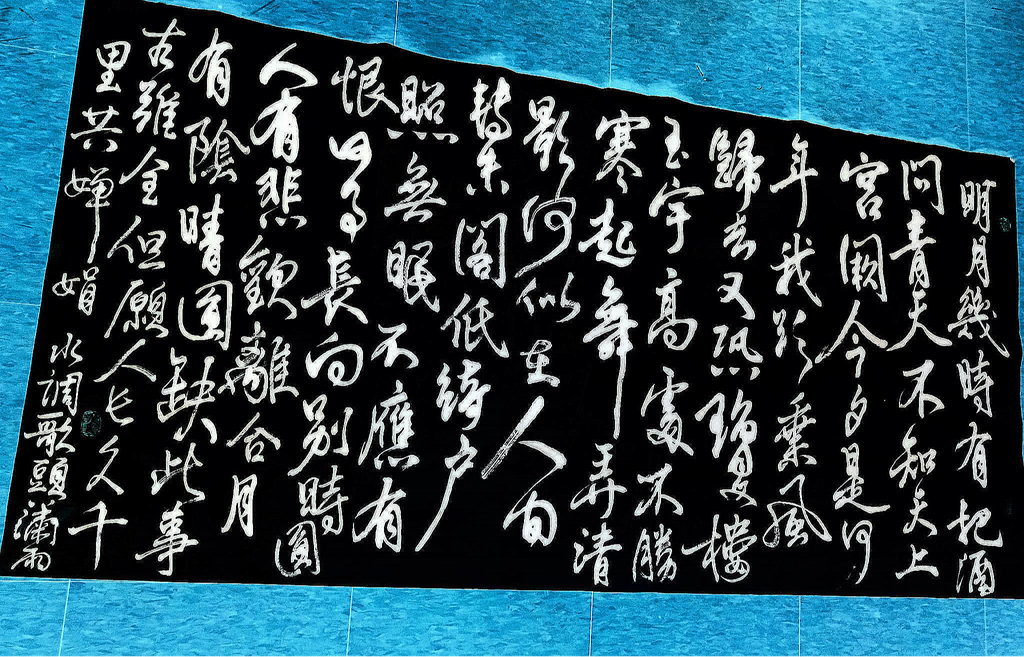 明月幾時有把酒
問青天不知天上
宮闕今夕是何
年我欲乘風
歸去又恐瓊樓
玉宇高處不勝
寒起舞弄清
影何似在人间
轉朱閣低綺户
照無眠不應有
恨何事長向别時圓
人有悲歡離合月
有陰晴圓缺此事
古難全但願人长久千
里共嬋娟
水調歌頭瀟雨